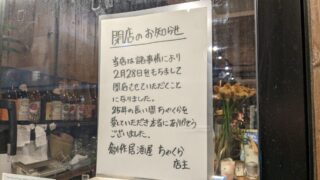 閉店のお知らせ
当店は諸事情により
2月28日をもちまして
閉店させていただくことに
なりました。
25年の長い間ちゃくらを
愛していただき本当にありがとう
ございました。
創作居酒屋 ちゃくら
店主